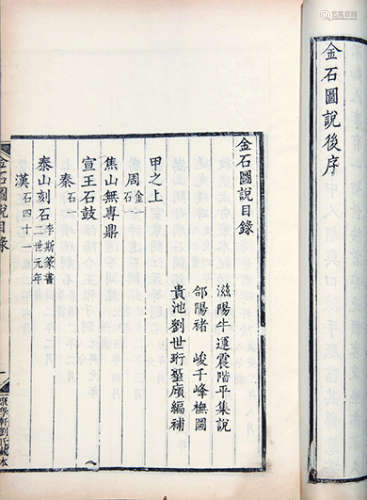 金石圖說後序
金石圖說目錄
滋陽牛運震階平集說
郃陽褚　峻千峰橅圖
貴池劉世珩䓖石編補
甲之上
周金一石一
焦山無專鼎
宣王石鼓
秦石一
泰山刻石李斯篆書二世元年
漢石四十一
金石圖說目錄
聚學軒劉氏藏本